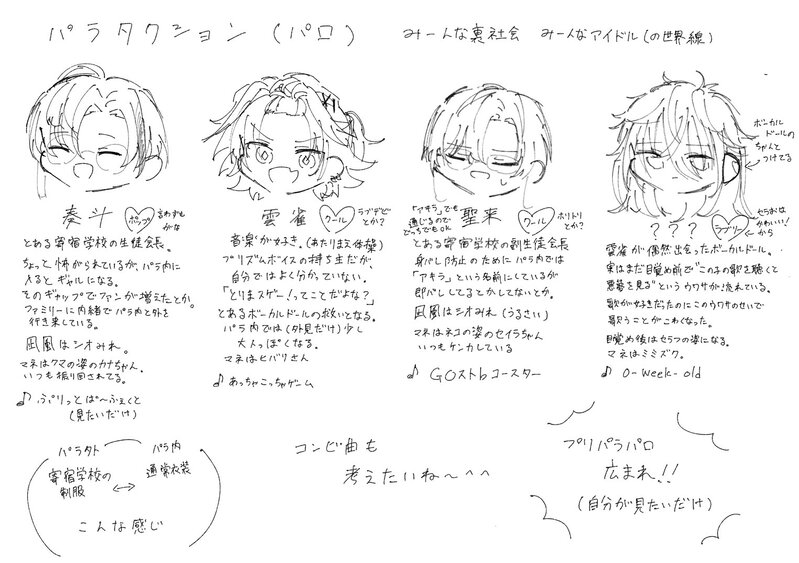 パラタクション(パロ)
みーんな裏社会 みーんなアイドル(の世界線)
奏斗
ポップ
言わずもがな
とある寄宿学校の生徒会長。
ちょっと怖がられているが、パラ内に
入るとギャルになる。
そのギャップでファンが増えたとか。
ファミリーに内緒でパラ内と外を
行き来している。
凪凰はシオみれ。
マネはクマの姿のカナちゃん。
いつも振り回されてる。
♪ ぷりっとぱ〜ふぇくと
(見たいだけ)
雲雀
クール
ラブデビとか?
音楽が好き。(あたりまえ体操)
プリズムボイスの持ち主だが、
自分ではよく分かっていない。
「とりまスゲー!ってことだよな?」
とあるボーカルドールの救いとなる。
パラ内では(外見だけ)少し
大人っぽくなる。
マネはヒバリさん
♪ あっちゃこっちゃゲーム
「アキラ」でも
通じるので
どっちでもOK
聖来
クール
ホリトリとか?
とある寄宿学校の副生徒会長。
身バレ防止のためにパラ内では
「アキラ」という名前にしているが
即バレしてるとかしてないとか。
凪凰はシオみれ(うるさい)
マネはネコの姿のセイラちゃん
いつもケンカしている
♪ GOストbコースター
ボーカル
ドールの
ちゃんと
つけてる
???
ラブリー
セラおは
かわいい!
から
雲雀が偶然出会ったボーカルドール。
実はまだ目覚め前で"この子の歌を聴くと
悪夢を見る"というウワサが流れている。
歌が好きだったのにこのウワサのせいで
歌うことがこわくなった。
目覚め後はセラフの姿になる。
マネはミミズク。
♪ 0-week-old
パラタト
パラ内
寄宿学校の
制服
↔
通常衣装
こんな感じ
コンビ曲も
考えたいね〜^^
プリパラパロ
広まれ!!
(自分が見たいだけ)